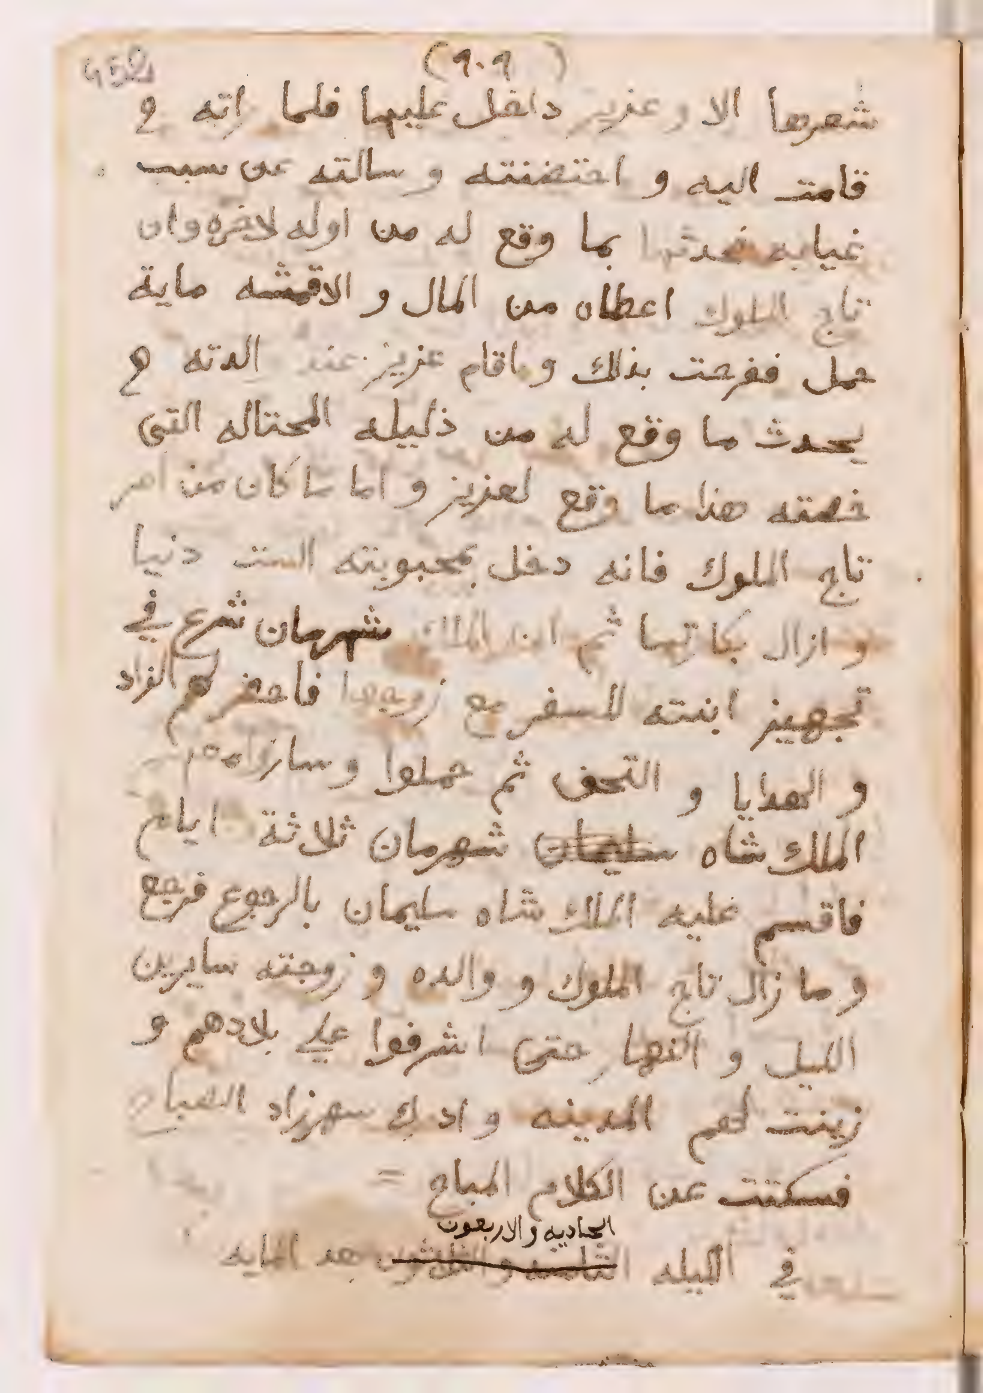 452 (٩٠٩)
شعرها الا و عزيز داخل عليها فلما راته و
قامت اليه و احتضنته و سالته عن سبب
غيابه فحدثها بما وقع له من اوله لاخره وان
تاج الملوك اعطاه من المال و الاقمشه ماية
حمل ففرحت بذلك و اقام عزيز عند الدته و
يحدث ما وقع له من دليله المحتاله التى
خصته هذا ما وقع لعزيز و اما ما كان من امر
تاج الملوك فانه دخل بمحبوبته الست دنيا
و ازال بكارتها ثم ان الملك شهرمان شرع في
تجهيز ابنته للسفر مع زوجها فاحضر لهم الزاد
و الهدايا و التحف ثم حملوا و ساروا
الملك شاه سليمان شهرمان ثلاثة ايام
فاقسم عليه الملك شاه سليمان بالرجوع فرجع
و ما زال تاج الملوك و والده و زوجته سايرين
الليل و النهار حتى اشرفوا علي بلادهم و
زينت لهم المدينه و ادرك سهرزاد الصباح
فسكتت عن الكلام المباح =
الحاديه والاربعون
في الليله الثامنه و الثلاثون بعد المايه